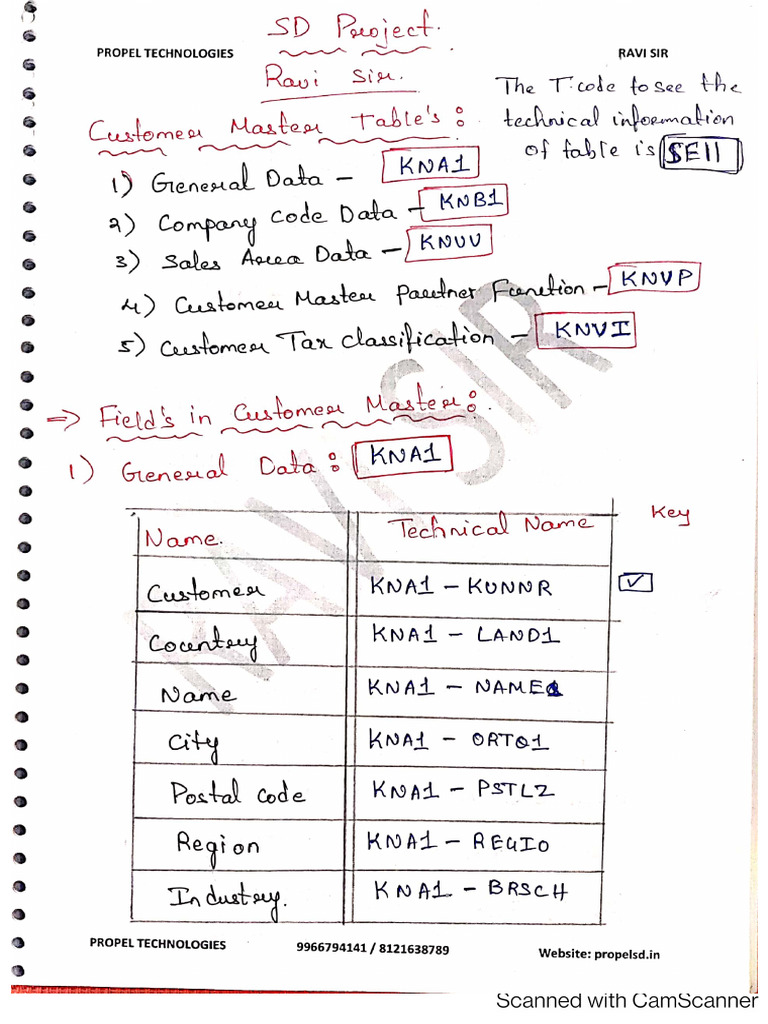 SD Project.
PROPEL TECHNOLOGIES RAVI SIR
Ravi Sir.
The T.code to see the
technical information
of table is SE11
Customer Master Table's :
1) General Data - KNA1
2) Company Code Data - KNB1
3) Sales Area Data - KNVV
4) Customer Master Partner Function - KNVP
5) Customer Tax Classification - KNVI
RAVI SIR
⇒ Field's in Customer Master :
1) General Data : KNA1
Name. Technical Name Key
Customer KNA1 - KUNNR ✓
Country KNA1 - LAND1
Name KNA1 - NAME1
City KNA1 - ORT01
Postal code KNA1 - PSTLZ
Region KNA1 - REGIO
Industry. KNA1 - BRSCH
PROPEL TECHNOLOGIES 9966794141 / 8121638789 Website: propelsd.in
Scanned with CamScanner